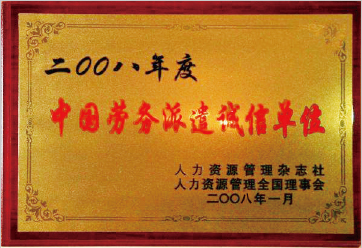 二〇〇八年度
中国劳务派遣诚信单位
人力资源管理杂志社
人力资源管理全国理事会
二〇〇八年一月